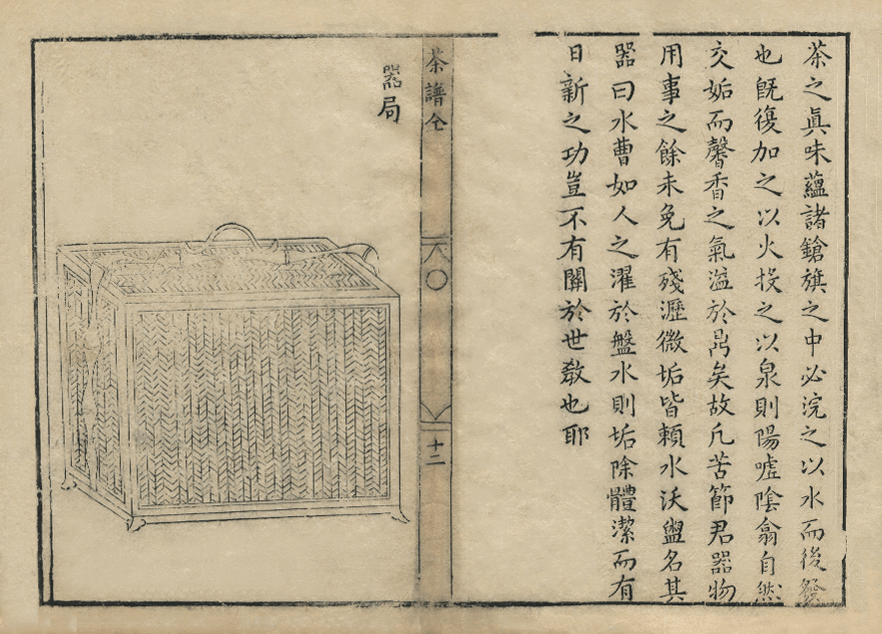 茶之眞味蘊諸鎗旗之中必浣之以水而後發
也旣復加之以火投之以泉則陽噓陰翕自然
交姤而馨香之氣溢於鼎矣故凡苦節君器物
用事之餘未免有殘瀝微垢皆賴水沃盥名其
器曰水曹如人之濯於盤水則垢除體潔而有
日新之功豈不有關於世教也耶
茶譜仝
十二
器局